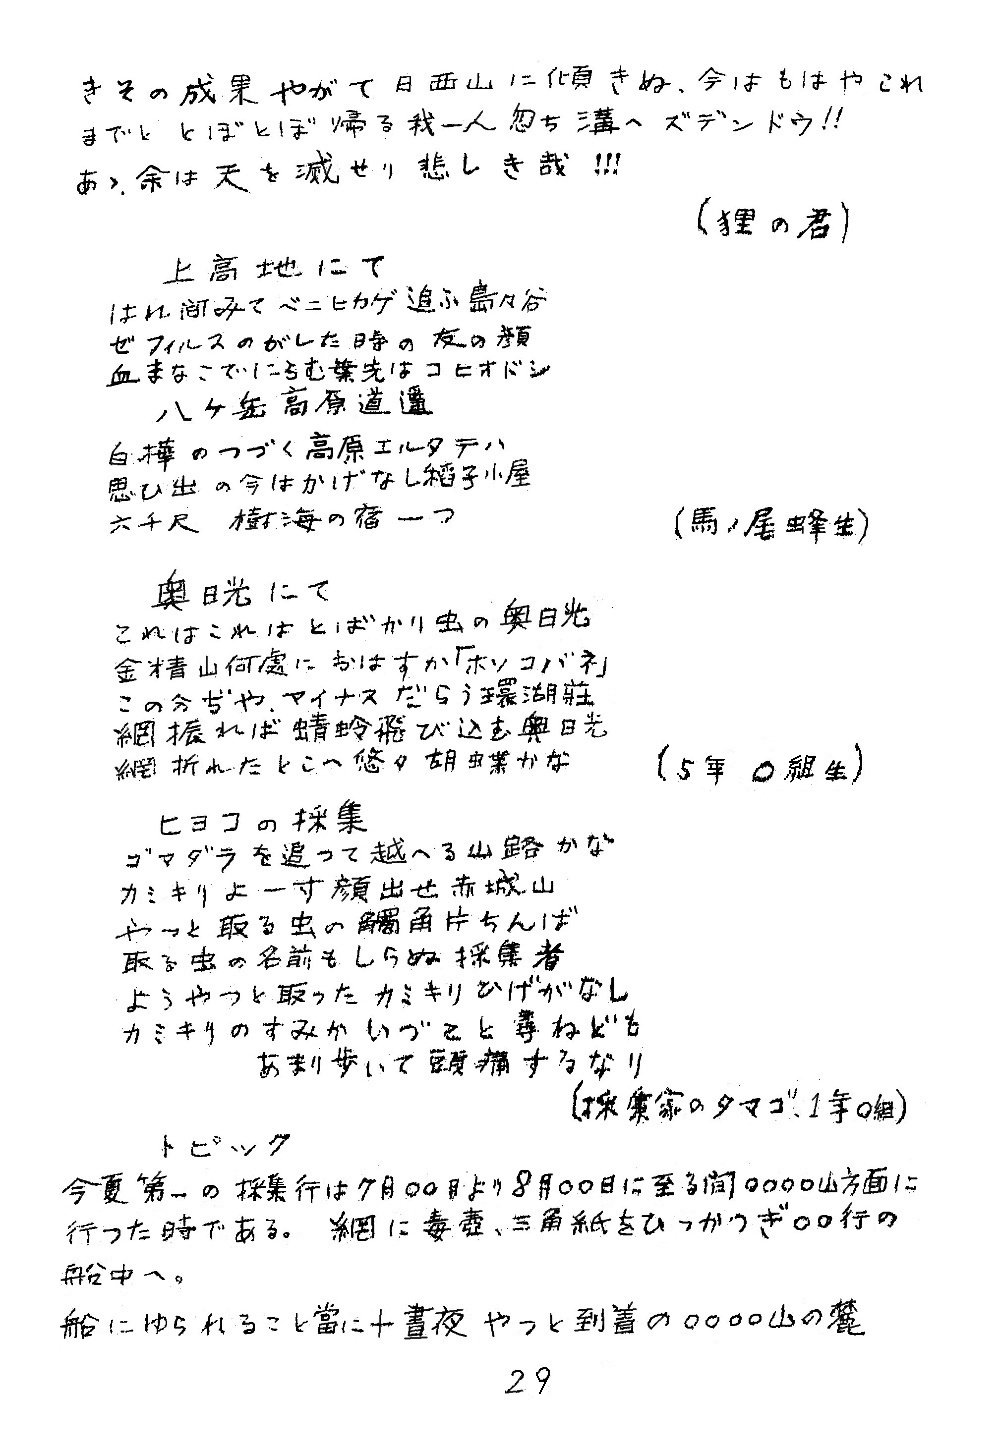 きその成果やがて日西山に傾きぬ、今はもはやこれ
までと とぼとぼ帰る我一人忽ち溝へズデンドウ!!
あゝ、余は天を滅せり悲しき哉!!!
(狸の君)
上高地にて
はれ間みてベニヒカゲ追ふ島々谷
ゼフィルスのがした時の友の顔
血まなこでにらむ葉先はコヒオドシ
八ケ岳高原道遥
白樺のつづく高原エルタテハ
思ひ出の今はかげなし稻子小屋
六千尺 樹海の宿一つ
(馬ノ尾蜂生)
奥日光にて
これはこれはとばかり虫の奥日光
金精山何處におはすか「ホソコバネ」
この分ぢや、マイナスだらう環湖莊
網振れば蜻蛉飛び込む奥日光
網折れたとこへ悠々胡蝶かな
(5年 〇組生)
ヒヨコの採集
ゴマダラを追つて越へる山路かな
カミキリよ一寸顔出せ赤城山
やつと取る虫の觸角片ちんば
取る虫の名前もしらぬ採集者
ようやつと取ったカミキリひげがなし
カミキリのすみかいづこと尋ねども
あまり歩いて頭痛するなり
(採集家のタマゴ、1年〇組)
トピック
今夏第一の採集行は7月〇〇日より8月〇〇日に至る間〇〇〇〇山方面に
行つた時である。 網に毒壺、三角紙をひっかつぎ〇〇行の
船中へ。
船にゆられること當に十晝夜やつと到着の〇〇〇〇山の麓
29